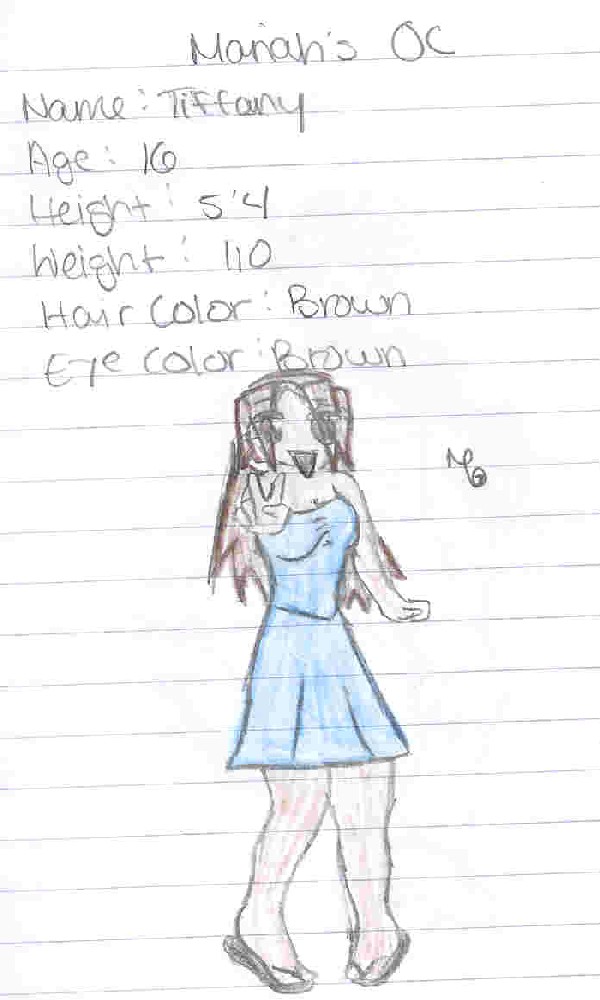 Mariah's OC
Name: Tiffany
Age: 16
Height: 5'4
Weight: 110
Hair Color: Brown
Eye Color: Brown